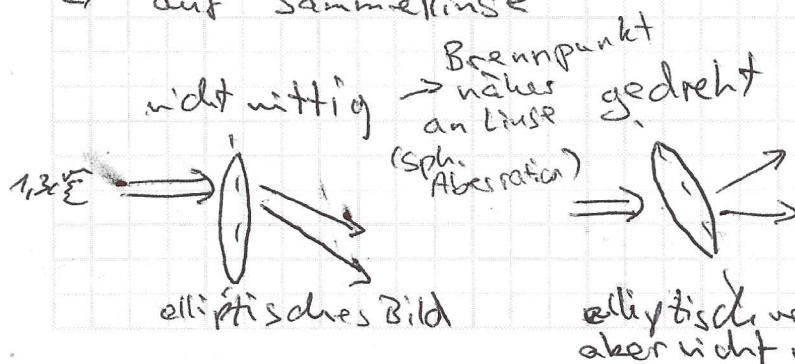 auf Sammellinse
nicht mittig
→ Brennpunkt
näher
an Linse
(sph.
Aberration)
gedreht
elliptisches Bild
elliptisch
aber nicht